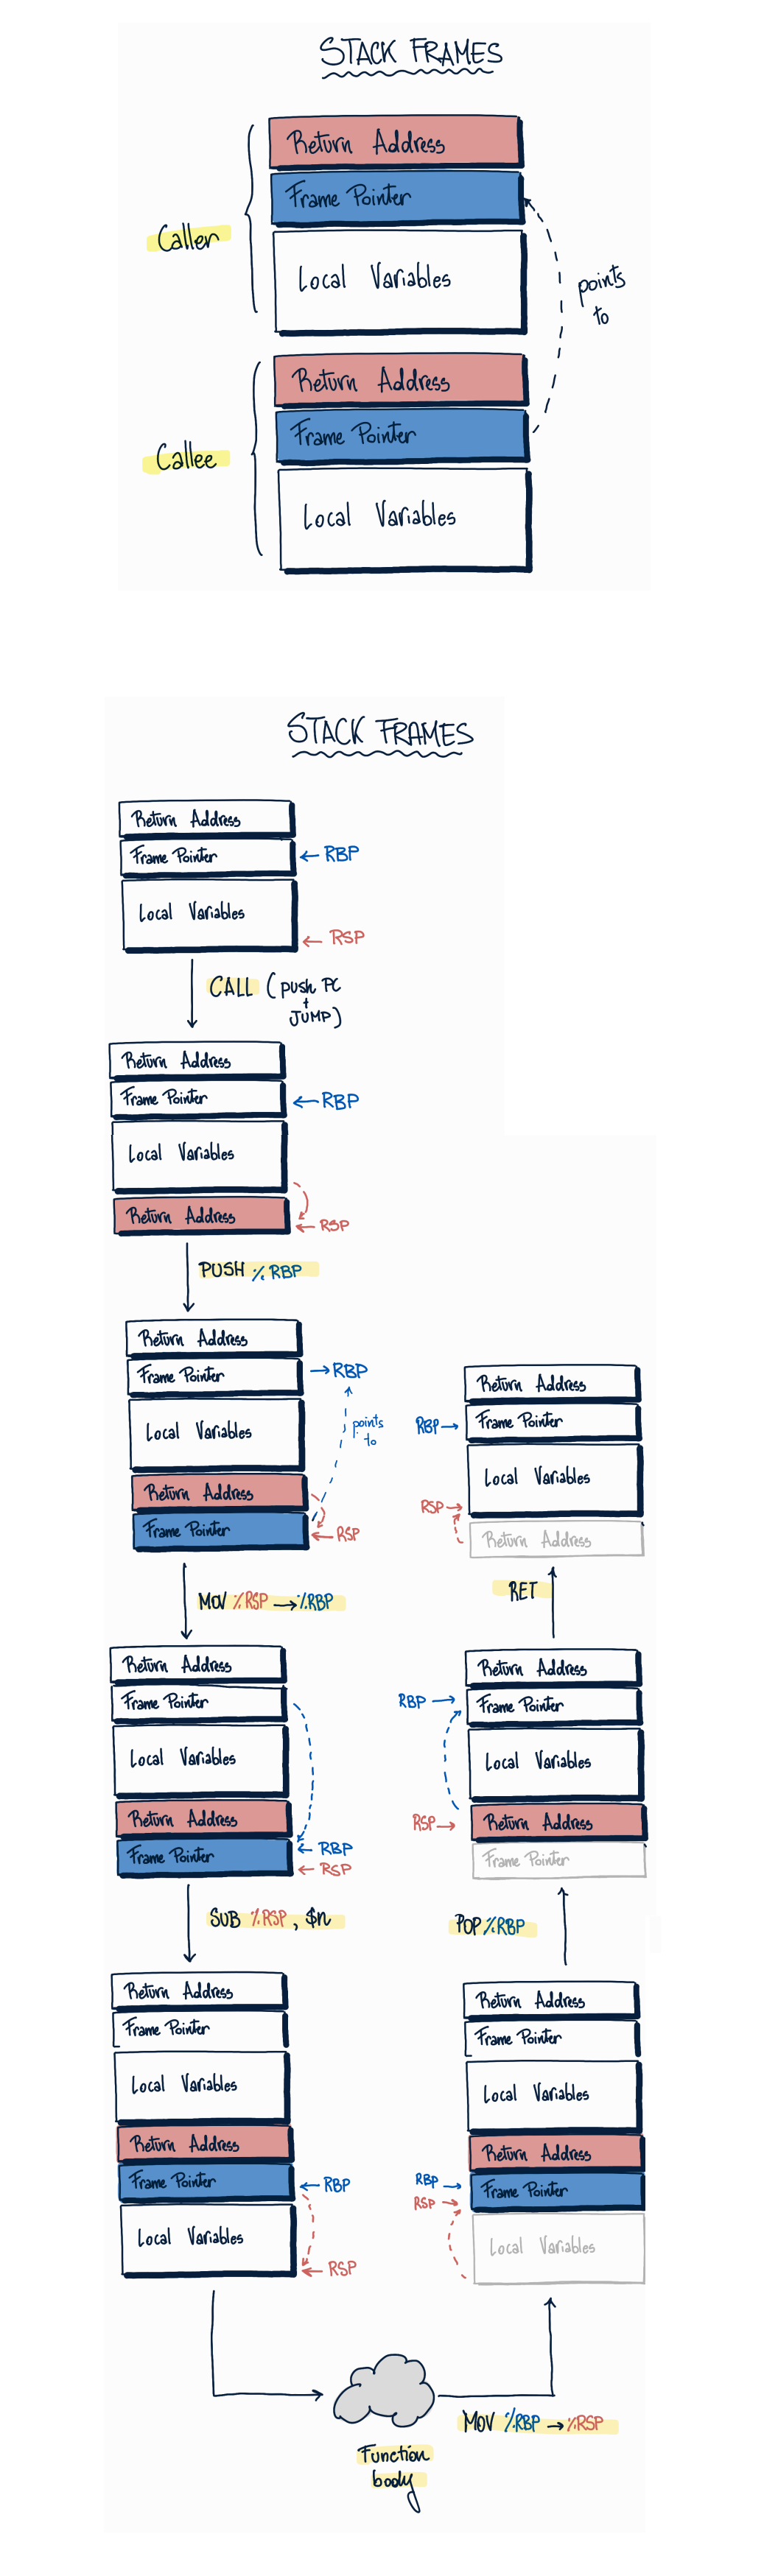 STACK FRAMES
Return Address
Frame Pointer
Caller
Local Variables
points
to
Return Address
Frame Pointer
Callee
Local Variables
STACK FRAMES
Return Address
Frame Pointer
← RBP
Local Variables
← RSP
CALL (push PC
+
JUMP)
Return Address
Frame Pointer
← RBP
Local Variables
Return Address
← RSP
PUSH % RBP
Return Address
Frame Pointer
→ RBP
points
to
Local Variables
Return Address
Frame Pointer
← RSP
MOV %RSP → %RBP
Return Address
Frame Pointer
Local Variables
Return Address
Frame Pointer
← RBP
← RSP
SUB %RSP, $n
Return Address
Frame Pointer
Local Variables
Return Address
Frame Pointer
← RBP
Local Variables
← RSP
Function
body
MOV %RBP → %RSP
Return Address
Frame Pointer
Local Variables
Return Address
RBP →
Frame Pointer
RSP →
Local Variables
POP %RBP
Return Address
RBP →
Frame Pointer
Local Variables
RSP →
Return Address
Frame Pointer
RET
Return Address
RBP →
Frame Pointer
Local Variables
RSP →
Return Address